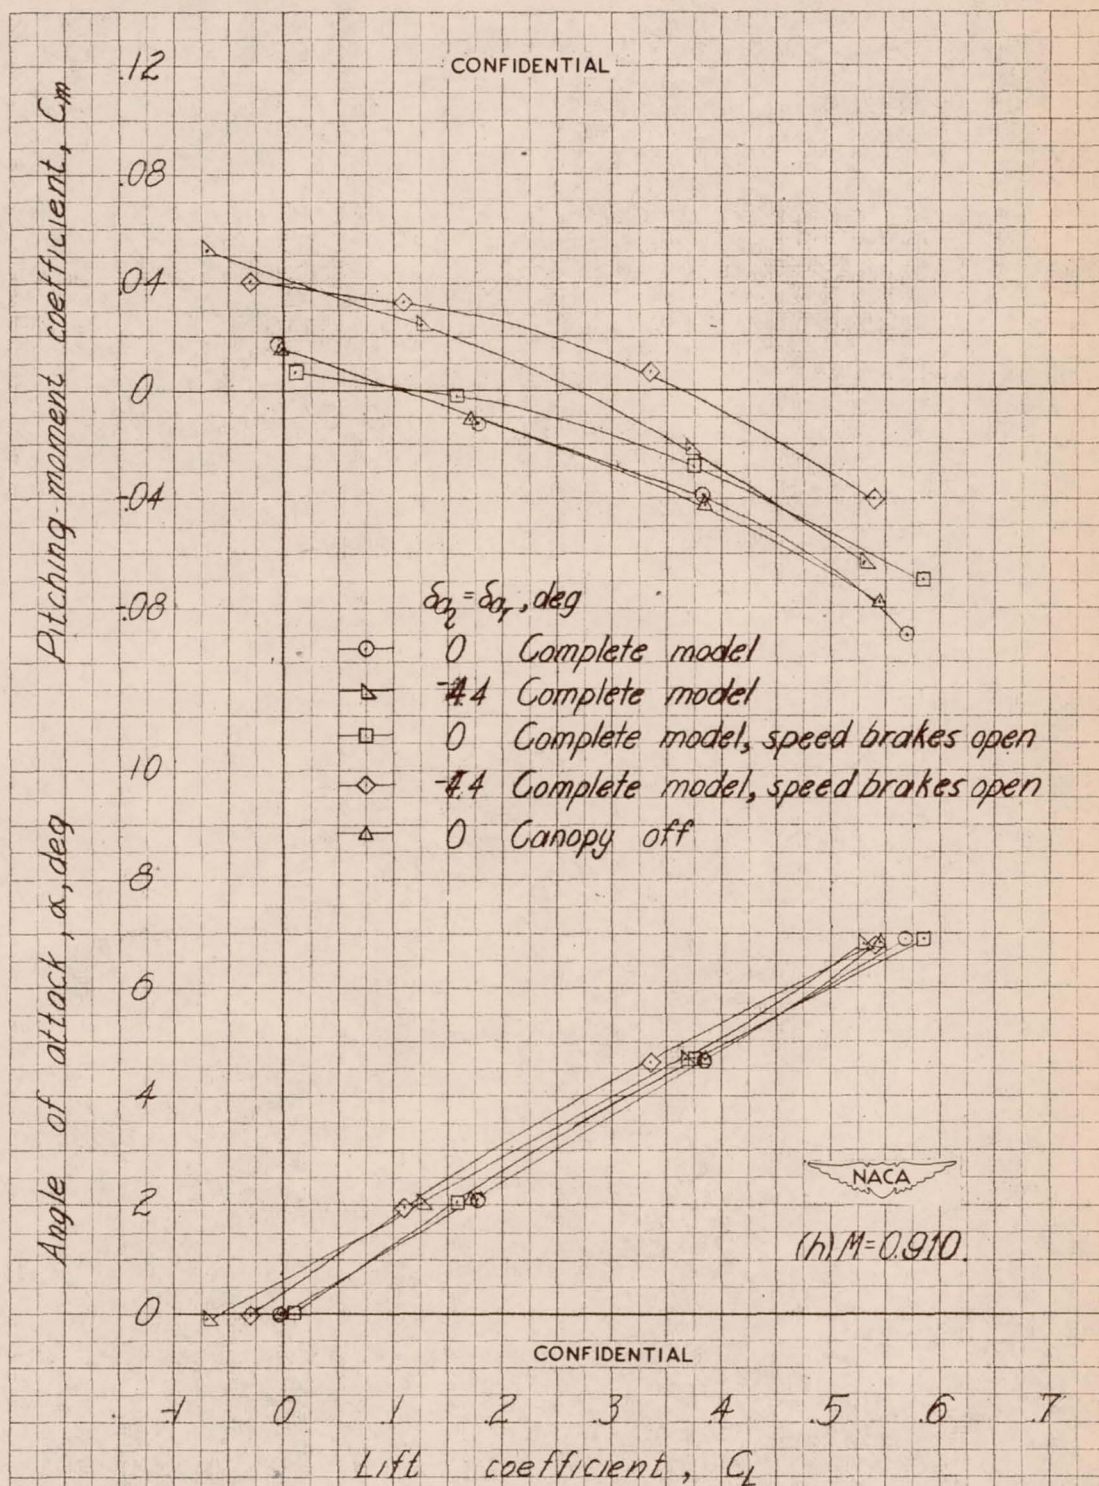 CONFIDENTIAL
Pitching-moment coefficient, Cm
.12
.08
.04
0
-.04
-.08
δaι=δar, deg
0 Complete model
-4.4 Complete model
0 Complete model, speed brakes open
-4.4 Complete model, speed brakes open
0 Canopy off
Angle of attack, α, deg
10
8
6
4
2
0
NACA
(h) M=0.910.
CONFIDENTIAL
-.1 0 .1 .2 .3 .4 .5 .6 .7
Lift coefficient, CL